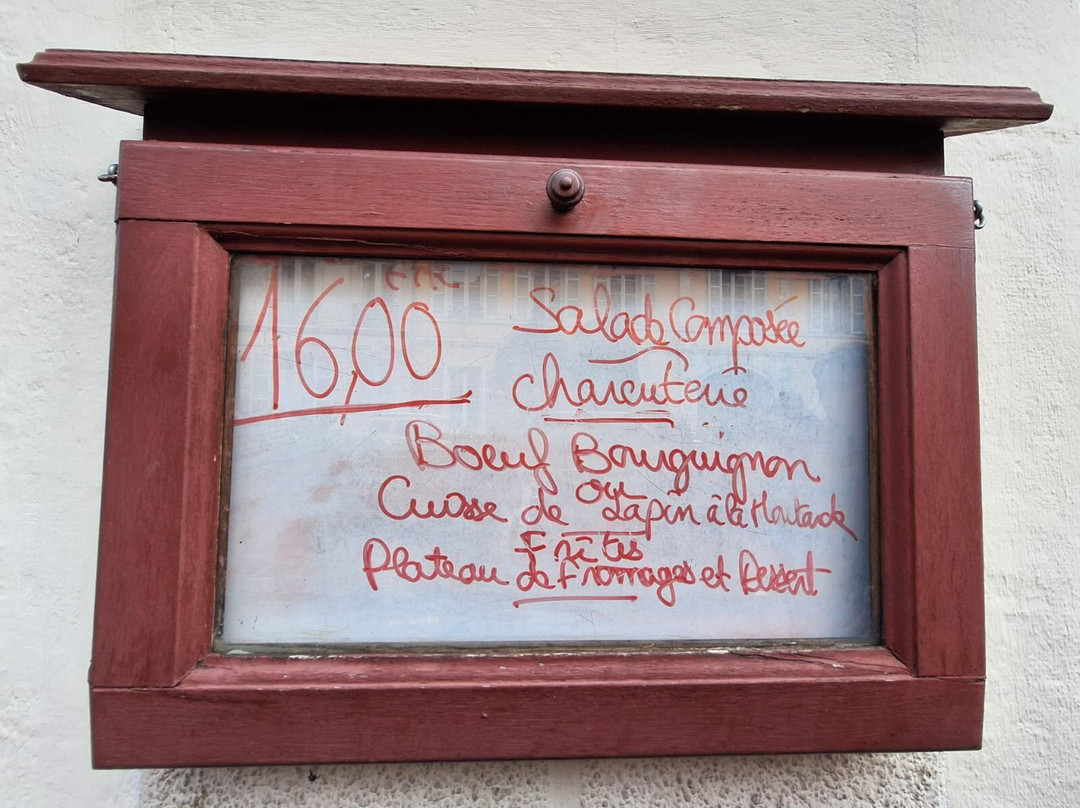 16,00
Salade Composée
Charcuterie
Boeuf Bourguignon
ou
Cuisse de Lapin à la Moutarde
Frites
Plateau de Fromages et Dessert